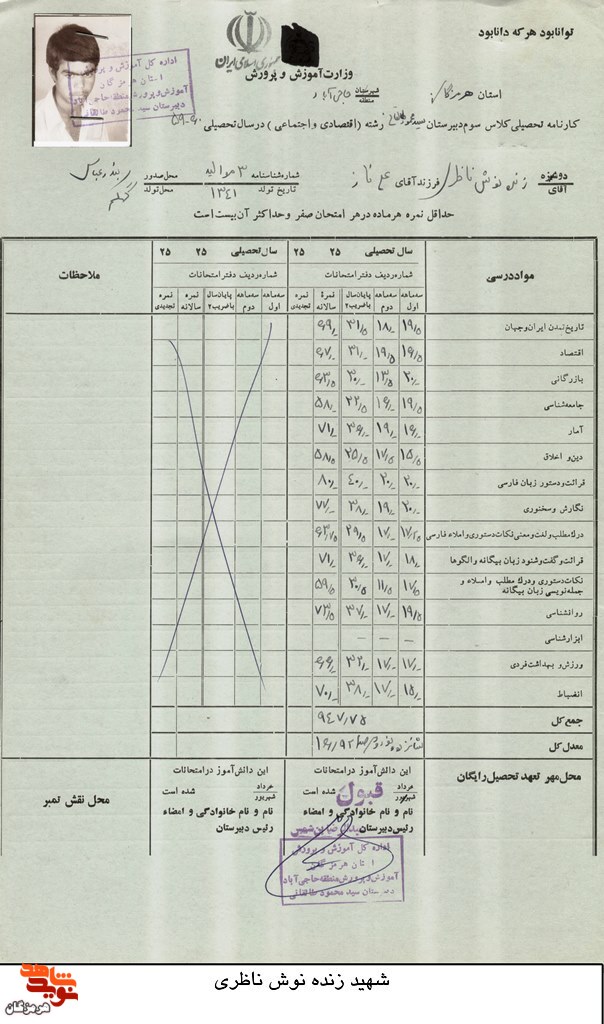 توانا بود هر که دانا بود
جمهوری اسلامی ایران
وزارت آموزش و پرورش
استان هرمزگان شهرستان منطقه حاجی آباد
اداره کل آموزش و پرورش
استان هرمزگان
آموزش و پرورش منطقه حاجی آباد
دبیرستان سید محمود طالقانی
کارنامه تحصیلی کلاس سوم دبیرستان سید محمود طالقانی رشته (اقتصادی و اجتماعی) در سال تحصیلی ۶۰-۵۹
دوشیزه آقای زنده نوش ناظری فرزند آقای علی ناز شماره شناسنامه ۳ محل صدور
تاریخ تولد ۱۳۴۱ محل تولد
حداقل نمره هر ماده در هر امتحان صفر و حداکثر آن بیست است
مواد درسی سال تحصیلی ۲۵ ۲۵ سال تحصیلی ۲۵ ۲۵ ملاحظات
شماره ردیف دفتر امتحانات شماره ردیف دفتر امتحانات
سه ماهه اول سه ماهه دوم پایان سال با ضریب ۲ نمرهٔ سالانه نمره تجدیدی سه ماهه اول سه ماهه دوم پایان سال با ضریب ۲ نمره سالانه نمره تجدیدی
تاریخ تمدن ایران و جهان ۱۹/۵ ۱۸/- ۳۱/۵ ۶۹/-
اقتصاد ۱۶/۵ ۱۹/۵ ۳۱/- ۶۷/-
بازرگانی ۲۰/- ۱۳/۵ ۳۰/- ۶۳/۵
جامعه شناسی ۱۹/۵ ۱۶/- ۲۲/۵ ۵۸/-
آمار ۱۶/- ۱۹/- ۳۶/- ۷۱/-
دین و اخلاق ۱۵/۵ ۱۷/۵ ۲۵/۵ ۵۸/۵
قرائت و دستور زبان فارسی ۲۰/- ۲۰/- ۴۰/- ۸۰/-
نگارش و سخنوری ۲۰/- ۱۹/- ۳۸/- ۷۷/-
درك مطلب و لغت و معنی نکات دستوری و املاء فارسی ۱۷/۲۵ ۱۷/- ۲۹/۵ ۶۳/۷۵
قرائت و گفت و شنود زبان بیگانه و الگوها ۱۸/- ۱۷/- ۳۶/- ۷۱/-
نکات دستوری و درك مطلب و املاء و جمله نویسی زبان بیگانه ۱۷/۵ ۱۱/۵ ۳۰/۵ ۵۹/۵
روانشناسی ۱۹/۵ ۱۷/- ۳۷/- ۷۳/۵
ابزارشناسی - - -
ورزش و بهداشت فردی ۱۷/- ۱۷/- ۳۲/- ۶۶/-
انضباط ۱۵/- ۱۷/- ۳۸/- ۷۰/-
جمع کل ۹۴۷/۷۵
معدل کل ۱۶/۹۲
محل مهر تعهد تحصیل رایگان
این دانش آموز در امتحانات
خرداد شهریور قبول شده است
نام و نام خانوادگی و امضاء
رئیس دبیرستان
این دانش آموز در امتحانات
خرداد شهریور شده است
نام و نام خانوادگی و امضاء
رئیس دبیرستان
محل نقش تمبر
اداره کل آموزش و پرورش
استان هرمزگان
آموزش و پرورش منطقه حاجی آباد
دبیرستان سید محمود طالقانی
شهید زنده نوش ناظری
نوید شاهد
هرمزگان